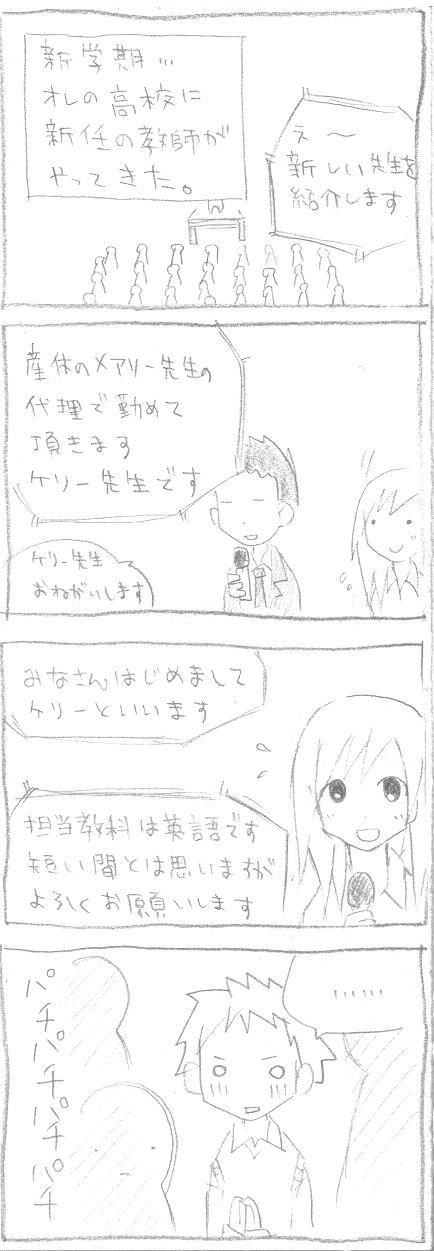 新学期…
オレの高校に
新任の教師が
やってきた。
え〜
新しい先生を
紹介します
産休のメアリー先生の
代理で勤めて
頂きます
ケリー先生です
ケリー先生
おねがいします
みなさんはじめまして
ケリーといいます
担当教科は英語です
短い間とは思いますが
よろしくお願いします
……
パチパチパチパチ